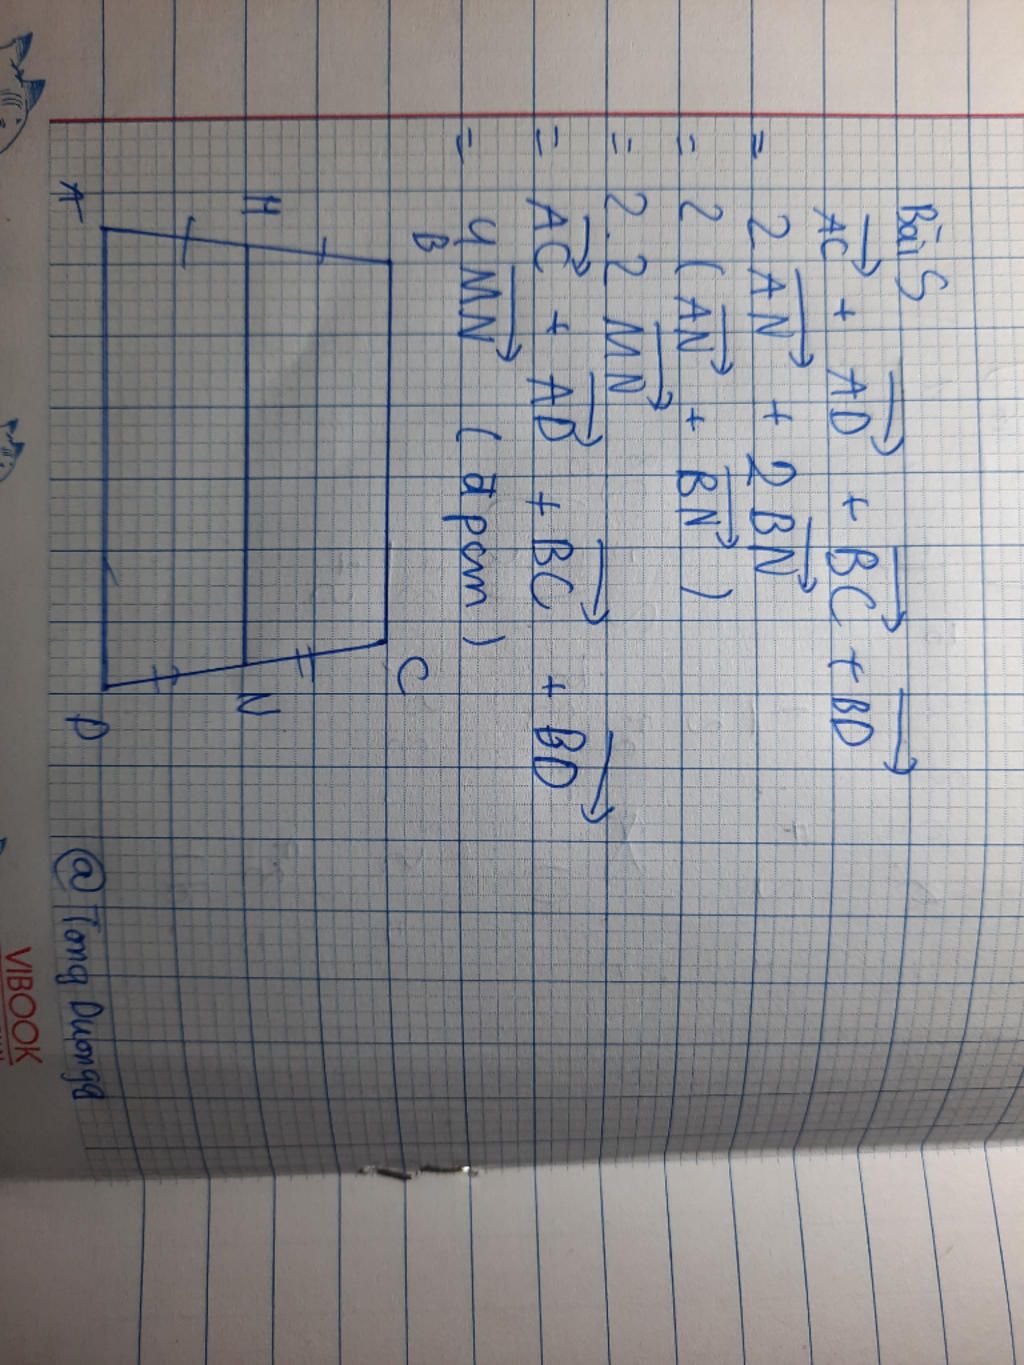 Bài 5
AC + AD + BC + BD
= 2AN + 2BN
= 2 (AN + BN)
= 2.2 MN
= AC + AD + BC + BD
= 4MN (đpcm)
B C
H N
A D
@Tong Duongg
VIBOOK